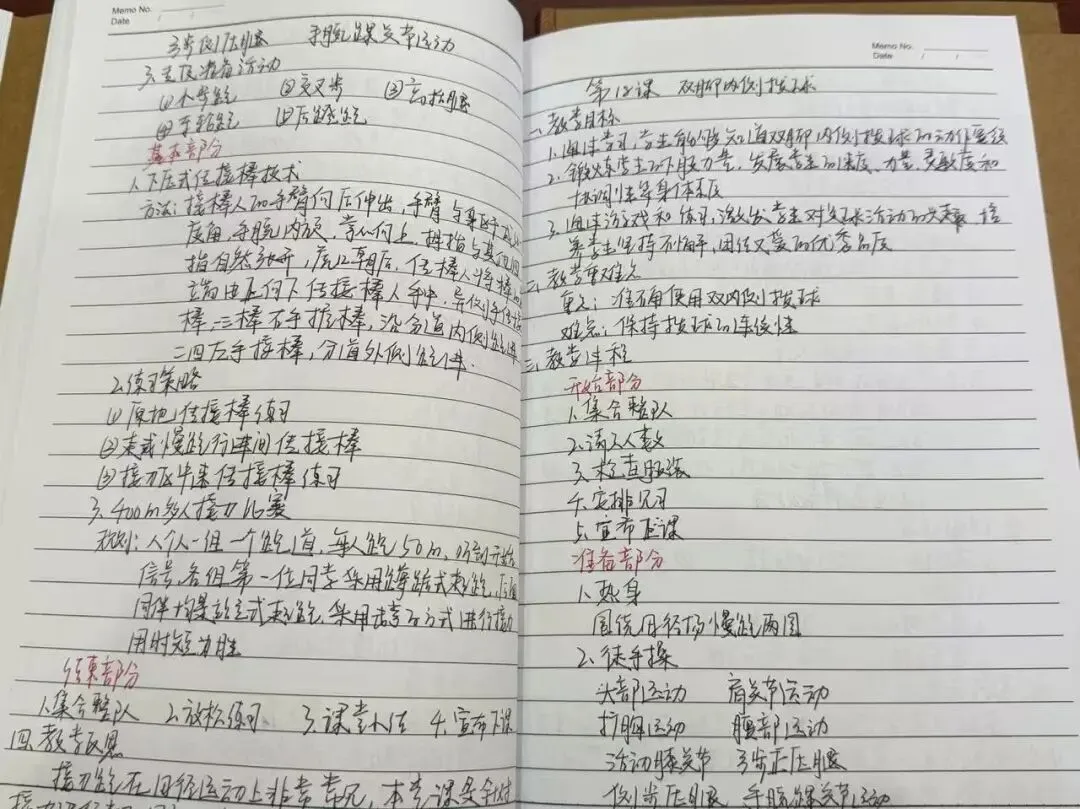 Memo No.
Date
弓步侧压腿 手腕踝关节运动
3.专项准备活动
(1)小步跑 (2)交叉步 (3)高抬腿
(4)车轮跑 (5)后蹬跑
基本部分
1.下压式传接棒技术
方法:接棒人的手臂向后伸出,手臂与身体成
度角,手腕内旋,掌心向上,拇指与其他四
指自然张开,虎口朝后,传棒人将棒的
端由上向下传接棒人手中,异侧手传接
棒,三棒右手握棒,沿分道内侧跑进
二四左手接棒,分道外侧跑进.
2.练习策略
(1)原地传接棒练习
(2)走或慢跑行进间传接棒
(3)接力区中来传接棒练习
3.400m多人接力比赛
规则:八个人一组一个跑道,每人跑50m,听到开始
信号,各组第一位同学采用蹲踞式起跑,后面
同伴均是站立式起跑,采用击掌的方式进行接力
用时短为胜
结束部分
1.集合整队 2.放松练习 3.课堂小结 4.宣布下课
四.教学反思
接力跑在田径运动上非常常见,本节课是针对
Memo No.
Date
第12课 双脚内侧拨球
一.教学目标
1.通过学习,学生能够知道双脚内侧拨球的动作要领
2.锻炼学生的下肢力量,发展学生的速度、力量、灵敏度和
协调性等身体素质
3.通过游戏和练习,激发学生对足球活动的兴趣,培
养学生坚持不懈,团结友爱的优秀品质
二.教学重难点
重点:准确使用双内侧拨球
难点:保持拨球的连续性
三.教学过程
开始部分
1.集合整队
2.清点人数
3.检查服装
4.安排见习
5.宣布正课
准备部分
1.热身
围绕田径场慢跑两圈
2.徒手操
头部运动 肩关节运动
扩胸运动 腰部运动
活动膝关节 弓步正压腿
侧步压腿 手腕踝关节运动